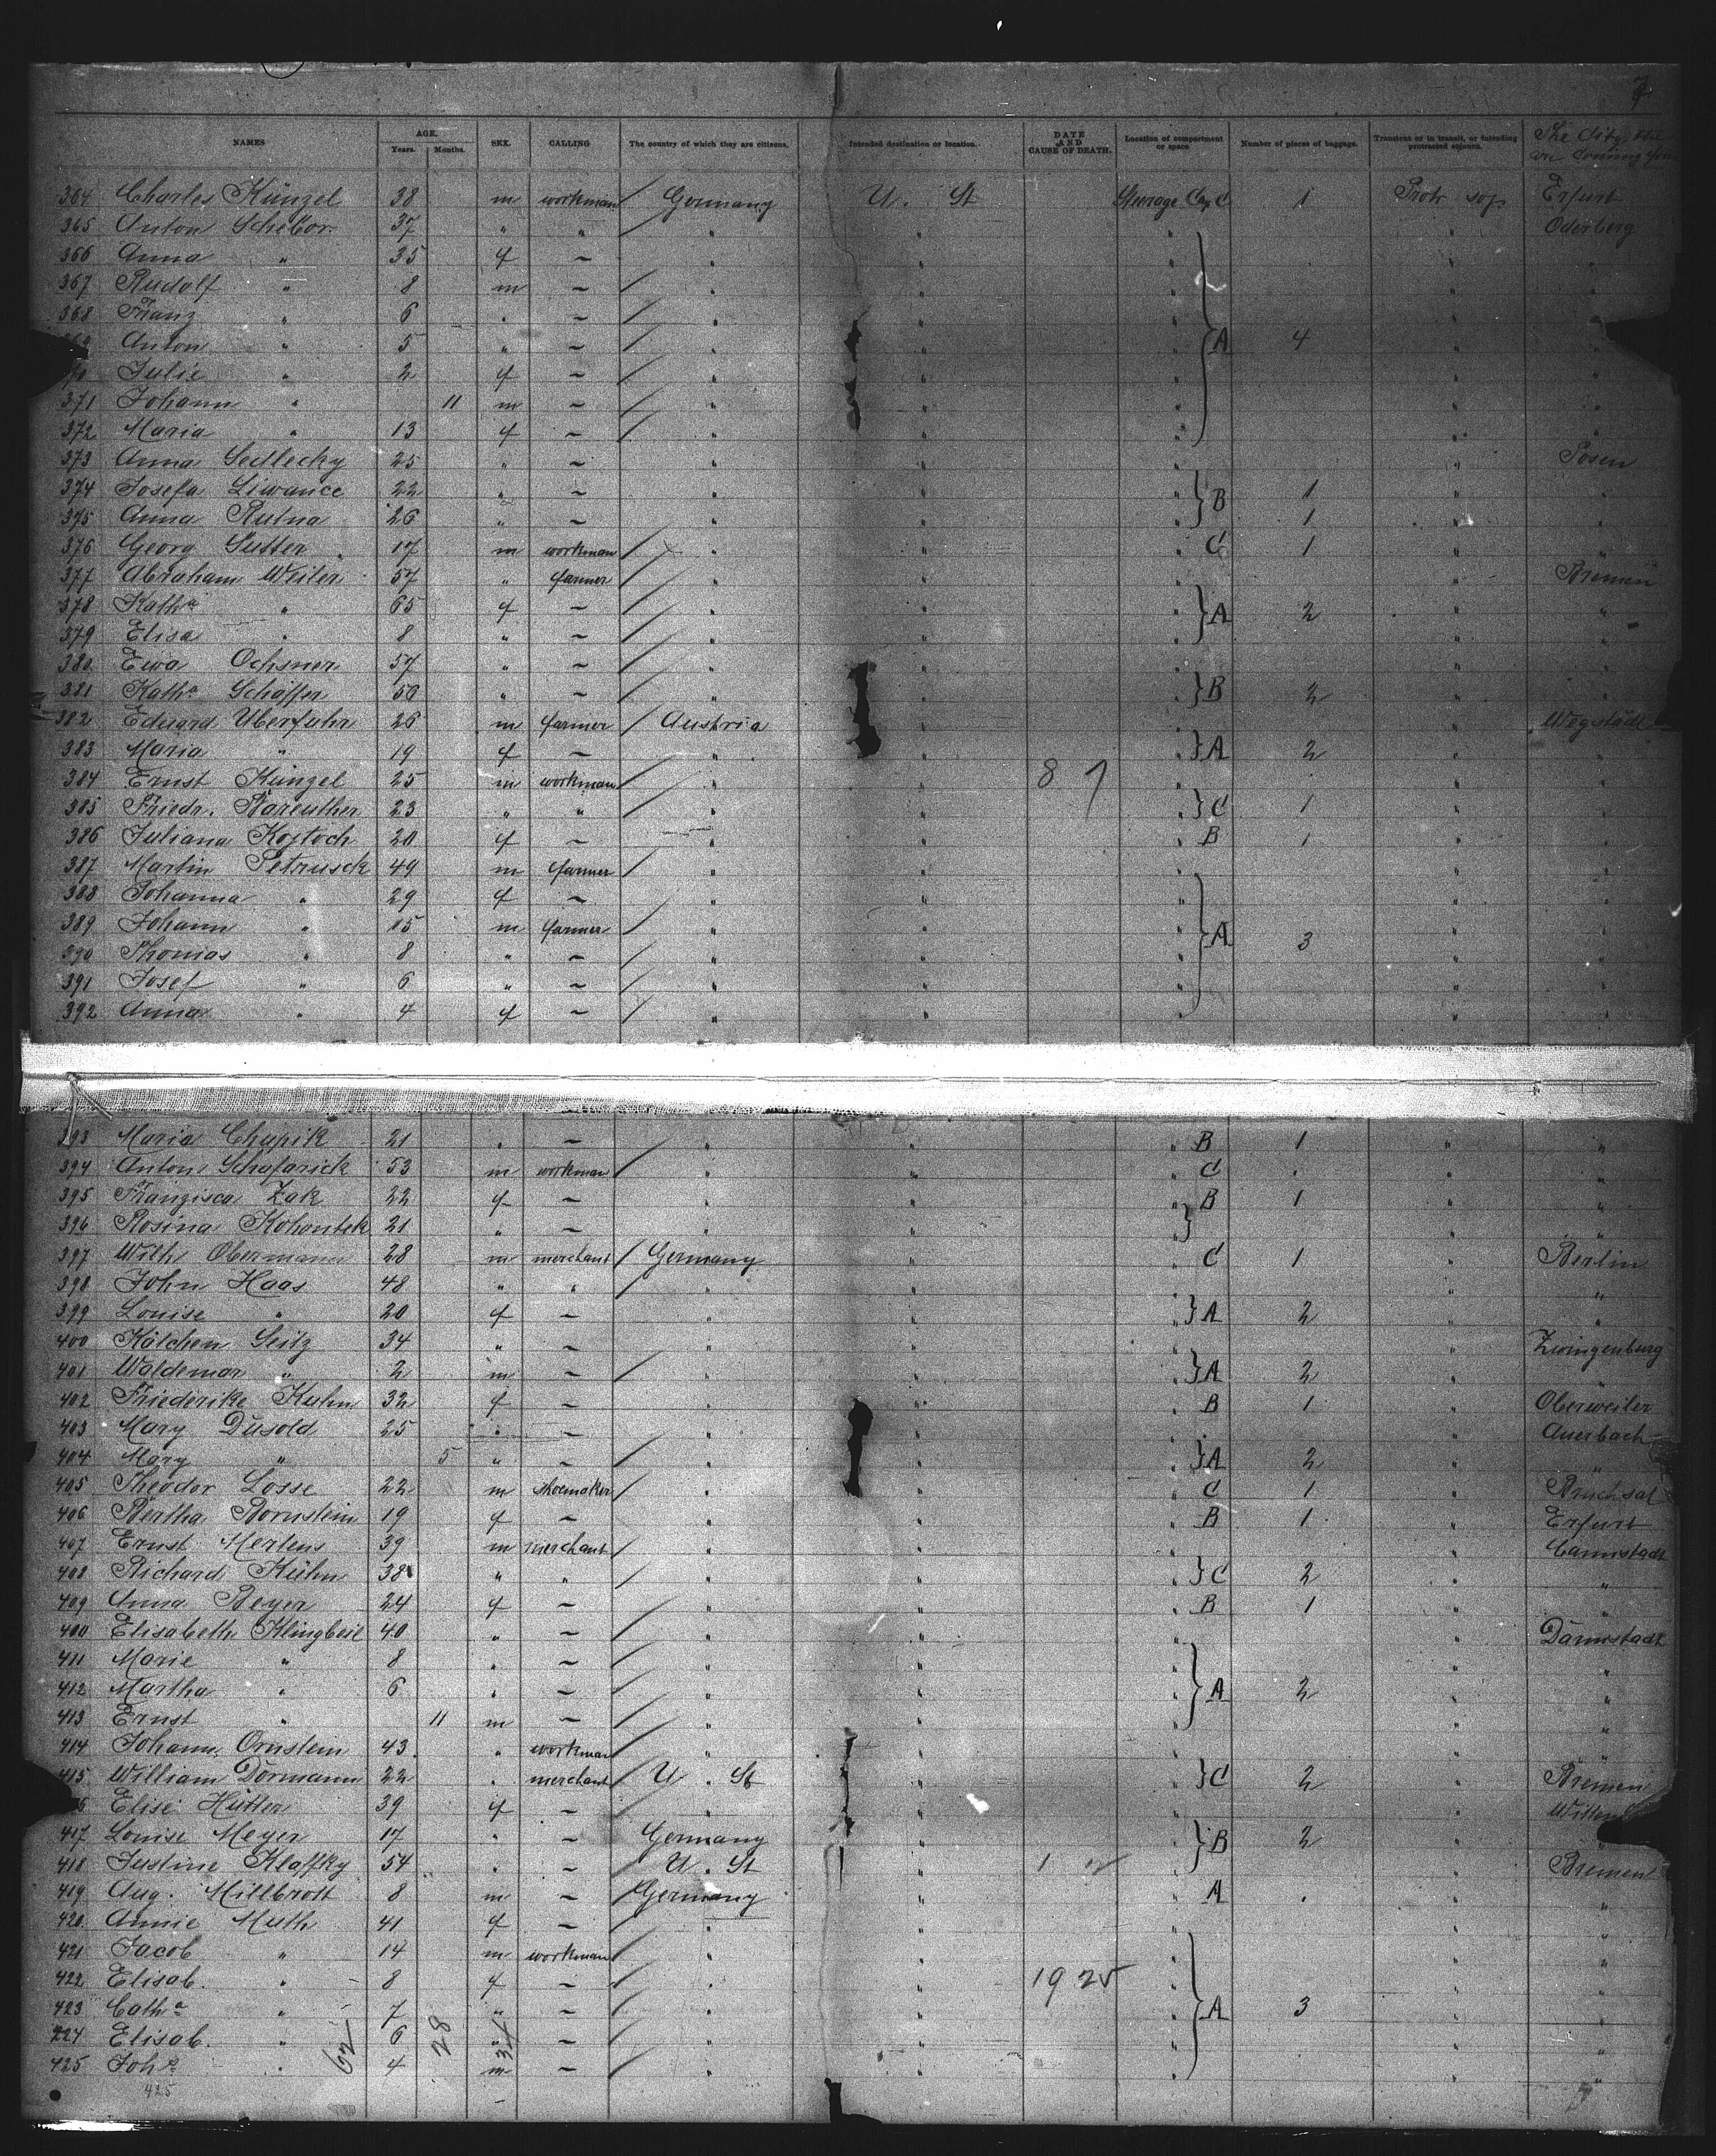 7
NAMES AGE. Years. Months. SEX. CALLING The country of which they are citizens. Intended destination or location. DATE AND CAUSE OF DEATH. Location of compartment or space Number of pieces of baggage. Transient or in transit, or intending protracted sojourn. The City they are coming from
364 Charles Künzel 38 m workman / Germany U. St Steerage C 1 Protr soj. Erfurt
365 Anton Schebor 37 " " / " " " " Oderberg
366 Anna " 35 f ~ " " " " "
367 Rudolf " 8 m ~ / " " " " "
368 Franz " 6 " ~ / " " " " "
Anton " 5 " ~ / " " " A 4 " "
Julie " 2 f ~ / " " " " "
371 Johann " 11 m ~ / " " " " "
372 Maria " 13 f ~ / " " " " "
373 Anna Sedlecky 25 " ~ " " " " Posen
374 Josefa Liwance 22 " ~ " " " B 1 " "
375 Anna Rutna 26 " ~ " " " 1 " "
376 Georg Sutter 17 m workman / " " " C 1 " "
377 Abraham Weiler 57 " farmer / " " " " Bremen
378 Kath.a " 65 f ~ / " " " A 2 " "
379 Elisa " 8 " ~ / " " " " "
380 Ewa Ochsner 57 " ~ / " " " " "
381 Kath.a Schäffer 50 " ~ / " " " B 2 " "
382 Eduard Uberfuhr 26 m farmer / Austria " " " Wegstädtl
383 Maria " 19 f ~ " " " A 2 " "
384 Ernst Künzel 25 m workman / " " 8 7 " " "
385 Friedr. Bareuther 23 " " / " " " C 1 " "
386 Juliana Kojtoch 20 f ~ " " " B 1 " "
387 Martin Petrusek 49 m farmer / " " " " "
388 Johanna " 29 f ~ " " " " "
389 Johann " 15 m farmer / " " " A 3 " "
390 Thomas " 8 " ~ / " " " " "
391 Josef " 6 " ~ / " " " " "
392 Anna " 4 f ~ / " " " " "
393 Maria Chapik 21 " ~ / " " " B 1 " "
394 Anton Schafarick 53 m workman / " " " C " " "
395 Franzisca Zak 22 f ~ " " " B 1 " "
396 Rosina Kohoutek 21 " ~ " " " " "
397 Wilh Obermann 28 m merchant / Germany " " C 1 " Berlin
398 John Haas 48 " " / " " " " "
399 Louise " 20 f ~ " " " A 2 " "
400 Kätchen Seitz 34 " ~ " " " " Zwingenburg
401 Waldemar " 2 m ~ / " " " A 2 " "
402 Friederike Kuhn 32 f ~ " " " B 1 " Oberweiler
403 Mary Dusold 25 " ~ " " " " Auerbach
404 Mary " 5 " ~ / " " " A 2 " "
405 Theodor Losse 22 m shoemaker / " " " C 1 " Bruchsal
406 Bertha Bornstein 19 f ~ " " " B 1 " Erfurt
407 Ernst Mertens 39 m merchant / " " " " Cannstadt
408 Richard Kühn 38 " " / " " " C 2 " "
409 Anna Beyer 24 f ~ " " " B 1 " "
400 Elisabeth Klingbeil 40 " ~ / " " " " Darmstadt
411 Marie " 8 " ~ / " " " " "
412 Martha " 6 " ~ / " " " A 2 " "
413 Ernst " 11 m ~ / " " " " "
414 Johann Ornstein 43 " workman / " " " " "
415 William Dormann 22 " merchant / U. St " " C 2 " Bremen
Elise Hütter 39 f ~ " " " "
417 Louise Meyer 17 " ~ Germany " " B 2 " "
418 Justine Klaffky 54 " ~ U. St " 1 " " Bremen
419 Aug. Millbrott 8 m ~ / Germany " " A " " "
420 Annie Muth 41 f ~ " " " " "
421 Jacob " 14 m workman / " " " " "
422 Elisab. " 8 f ~ / " " 19 25 " " "
423 Cath.a " 7 " ~ / " " " A 3 " "
424 Elisab. " 6 " ~ / " " " " "
425 Joh.s " 4 m ~ / " " " " "
62 28 34
425